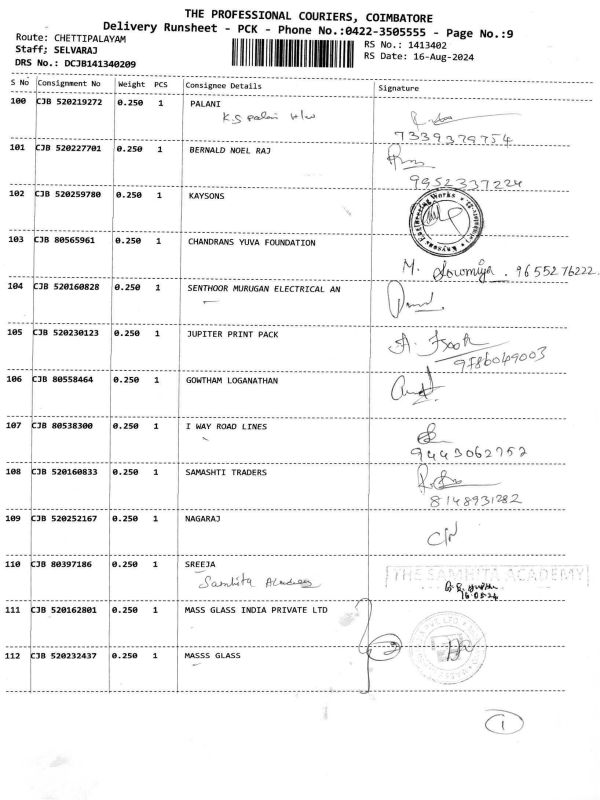 THE PROFESSIONAL COURIERS, COIMBATORE
Delivery Runsheet - PCK - Phone No.:0422-3505555 - Page No.:9
Route: CHETTIPALAYAM
RS No.: 1413402
Staff; SELVARAJ
RS Date: 16-Aug-2024
DRS No.: DCJB141340209
S No Consignment No Weight PCS Consignee Details Signature
100 CJB 520219272 0.250 1 PALANI
KS Palani
7339379754
101 CJB 520227701 0.250 1 BERNALD NOEL RAJ
9952337224
102 CJB 520259780 0.250 1 KAYSONS
Kaysons Engineering Works
103 CJB 80565961 0.250 1 CHANDRANS YUVA FOUNDATION
M. Sowmiya . 9655276222.
104 CJB 520160828 0.250 1 SENTHOOR MURUGAN ELECTRICAL AN
105 CJB 520230123 0.250 1 JUPITER PRINT PACK
9786049003
106 CJB 80558464 0.250 1 GOWTHAM LOGANATHAN
107 CJB 80538300 0.250 1 I WAY ROAD LINES
9443062752
108 CJB 520160833 0.250 1 SAMASHTI TRADERS
8148931282
109 CJB 520252167 0.250 1 NAGARAJ
110 CJB 80397186 0.250 1 SREEJA
Samhita Academy
THE SAMHITA ACADEMY
16.08.24
111 CJB 520162801 0.250 1 MASS GLASS INDIA PRIVATE LTD
2
112 CJB 520232437 0.250 1 MASSS GLASS
1